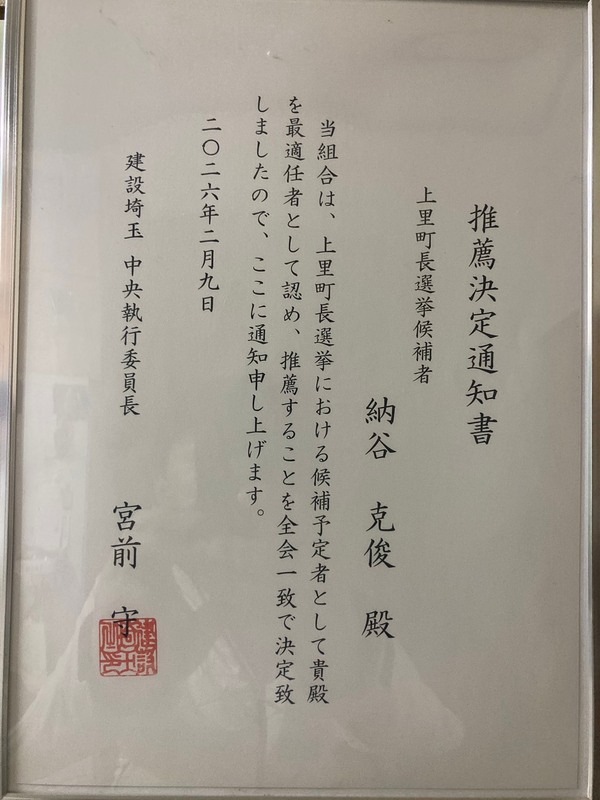 推薦決定通知書
上里町長選挙候補者
納谷 克俊 殿
当組合は、上里町長選挙における候補予定者として貴殿
を最適任者として認め、推薦することを全会一致で決定致
しましたので、ここに通知申し上げます。
二〇二六年二月九日
建設埼玉 中央執行委員長
宮前 守